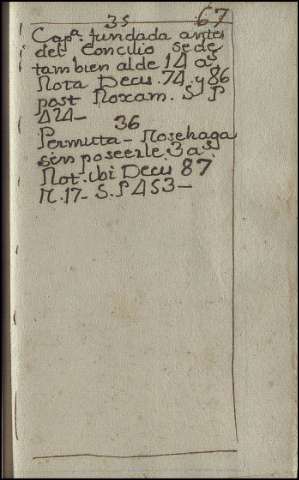 35 67
Capª. fundada antes
del Concilio se de
tambien al de 14 aˢ
Nota Decis. 74. y 86
post Roxam. S P
424-
36
Permuta - No se haga
sin poseerle 3 aˢ
Not. ubi Decis 87
N. 17- S. P 453-